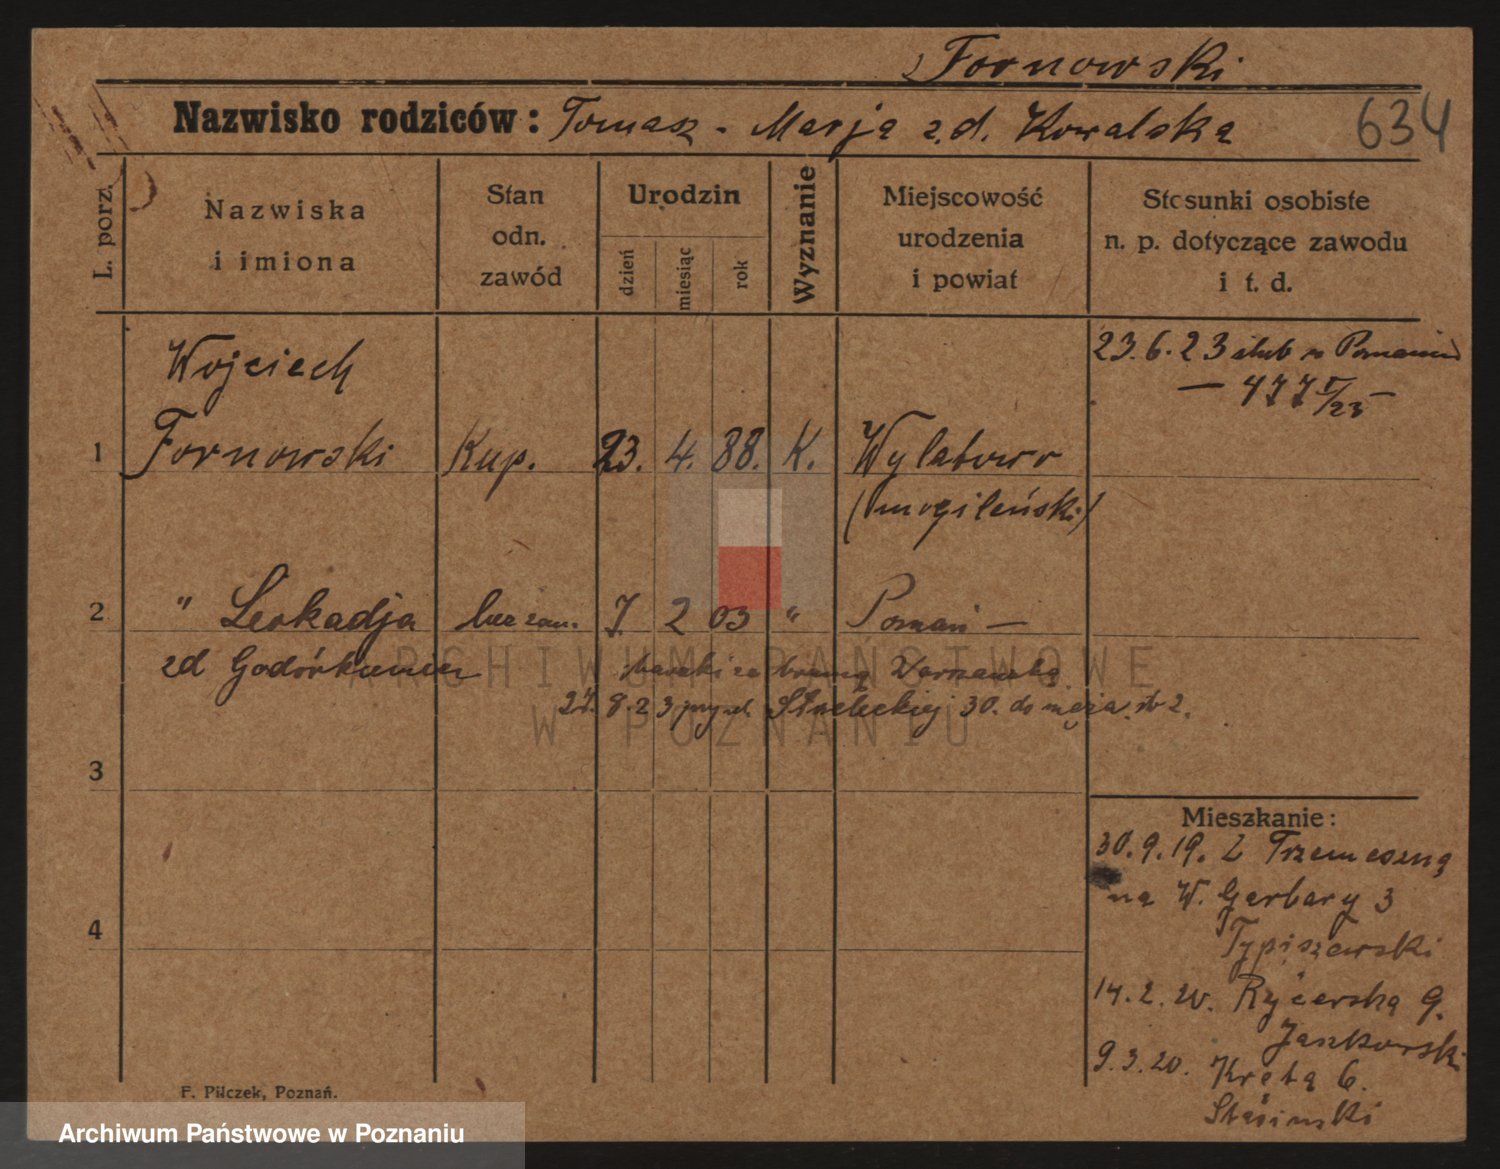 Fornowski
Nazwisko rodziców: Tomasz - Marja z.d. Kowalska
634
L. porz.
Nazwiska
i imiona
Stan
odn.
zawód
Urodzin
dzień
miesiąc
rok
Wyznanie
Miejscowość
urodzenia
i powiat
Stosunki osobiste
n. p. dotyczące zawodu
i t. d.
23.6.23 ślub w Poznaniu
Wojciech
1 Fornowski Kup. 23. 4. 88. K. Wylatowo
(mogileński)
2 " Leokadja bez zaw. 7. 2 03 " Poznań —
zd
za bramą Warszawską
27.8.23 30. do męża
ARCHIWUM PAŃSTWOWE
W POZNANIU
3
4
Mieszkanie:
30.9.19. Z Trzemeszna
na W. Garbary 3
Typiszewski
14.2.20. Rycerska 9.
Jaszkowski
9.3.20. Kręta 6.
Stasinski
F. Pilczek, Poznań.
Archiwum Państwowe w Poznaniu